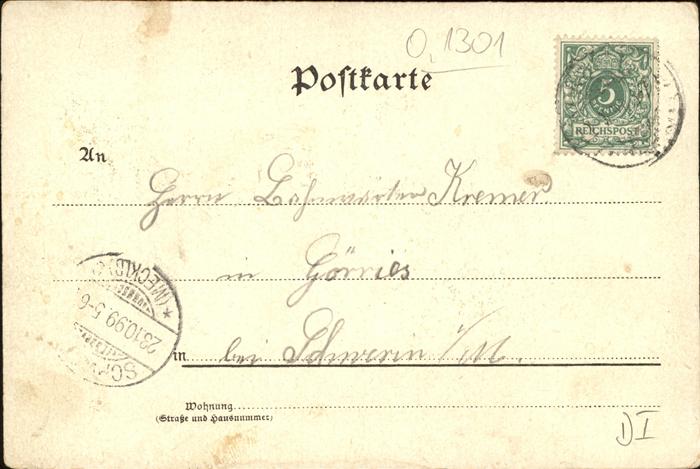 0,1301
Postkarte
5
REICHSPOST
An
Herrn Bahnwärter Kremer
in Görries
(MECKLB)
28.10.99.5-6
in bei Schwerin i/M.
Wohnung
(Straße und Hausnummer)
DI